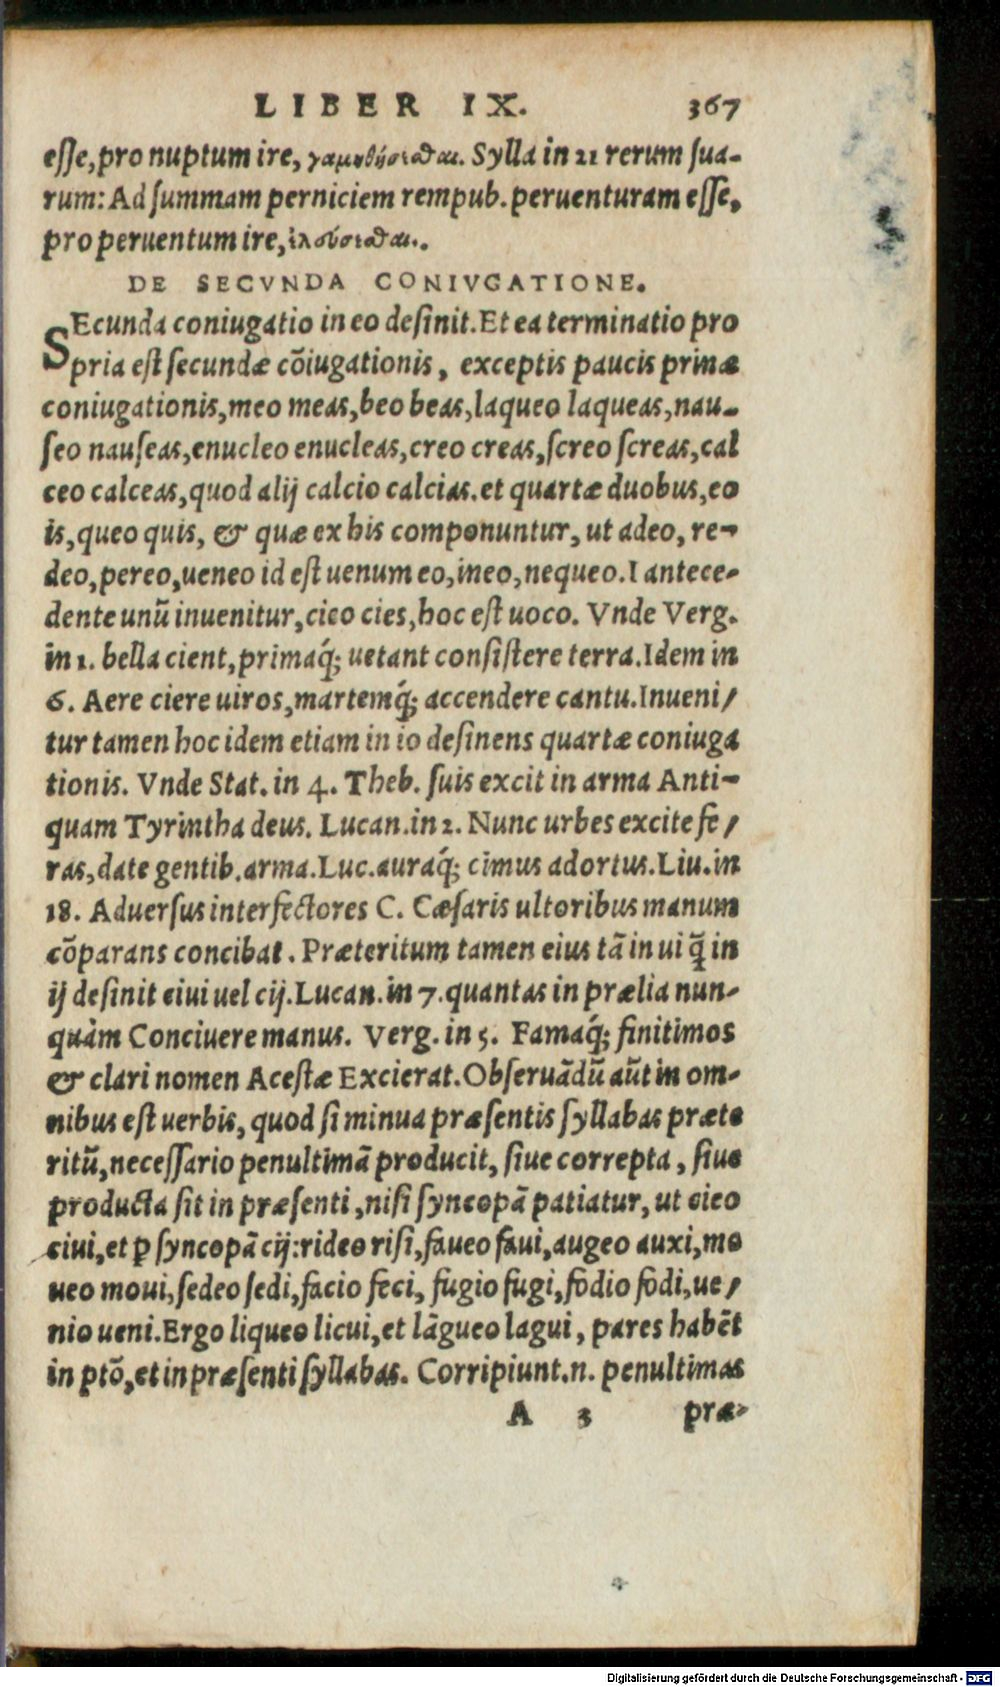 LIBER IX. 367
esse, pro nuptum ire, γαμηθήσεσθαι. Sylla in 21 rerum sua-
rum: Ad summam perniciem rempub. peruenturam esse,
pro peruentum ire,
DE SECVNDA CONIVGATIONE.
SEcunda coniugatio in eo desinit. Et ea terminatio pro
pria est secundæ cõiugationis, exceptis paucis primæ
coniugationis, meo meas, beo beas, laqueo laqueas, nau-
seo nauseas, enucleo enucleas, creo creas, screo screas, cal
ceo calceas, quod alij calcio calcias. et quartæ duobus, eo
is, queo quis, & quæ ex his componuntur, ut adeo, re-
deo, pereo, ueneo id est uenum eo, ineo, nequeo. I antece-
dente unũ inuenitur, cieo cies, hoc est uoco. Vnde Verg.
in 1. bella cient, primaq́; uetant consistere terra. Idem in
6. Aere ciere uiros, martemq́; accendere cantu. Inueni/
tur tamen hoc idem etiam in io desinens quartæ coniuga
tionis. Vnde Stat. in 4. Theb. suis excit in arma Anti-
quam Tyrintha deus. Lucan. in 2. Nunc urbes excite fe/
ras, date gentib. arma. Luc. auraq́; cimus adortus. Liu. in
18. Aduersus interfectores C. Cæsaris ultoribus manum
cõparans concibat. Præteritum tamen eius tã in ui q̃ in
ij desinit ciui uel cij. Lucan. in 7. quantas in prælia nun-
quàm Conciuere manus. Verg. in 5. Famaq́; finitimos
& clari nomen Acestæ Excierat. Obseruãdũ aũt in om-
nibus est uerbis, quod si minua præsentis syllabas præte
ritũ, necessario penultimã producit, siue correpta, siue
producta sit in præsenti, nisi syncopã patiatur, ut cieo
ciui, et ꝑ syncopã cij: rideo risi, faueo faui, augeo auxi, mo
ueo moui, sedeo sedi, facio feci, fugio fugi, fodio fodi, ue/
nio ueni. Ergo liqueo licui, et lãgueo lagui, pares habẽt
in ptõ, et in præsenti syllabas. Corripiunt .n. penultimas
A 3 præ-
Digitalisierung gefördert durch die Deutsche Forschungsgemeinschaft - DFG